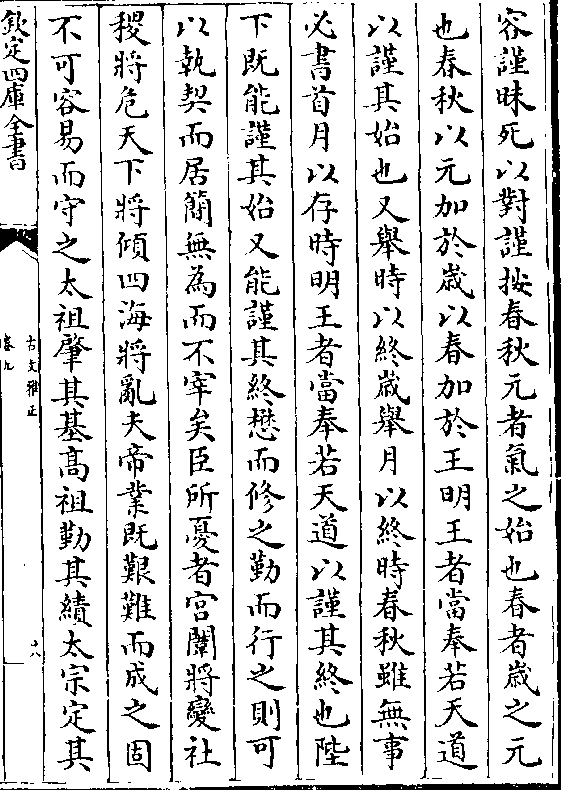 容謹昧死以對謹按春秋元者氣之始也春者歲之元
也春秋以元加於歲以春加於王明王者當奉若天道
以謹其始也又舉時以終歲舉月以終時春秋雖無事
必書首月以存時明王者當奉若天道以謹其終也陛
下既能謹其始又能謹其終懋而修之勤而行之則可
以執契而居簡無為而不宰矣臣所憂者宮闈將變社
稷將危天下將傾四海將亂夫帝業既艱難而成之固
不可容易而守之太祖肇其基高祖勤其績太宗定其
欽定四庫全書
古文雅正
卷九
十八